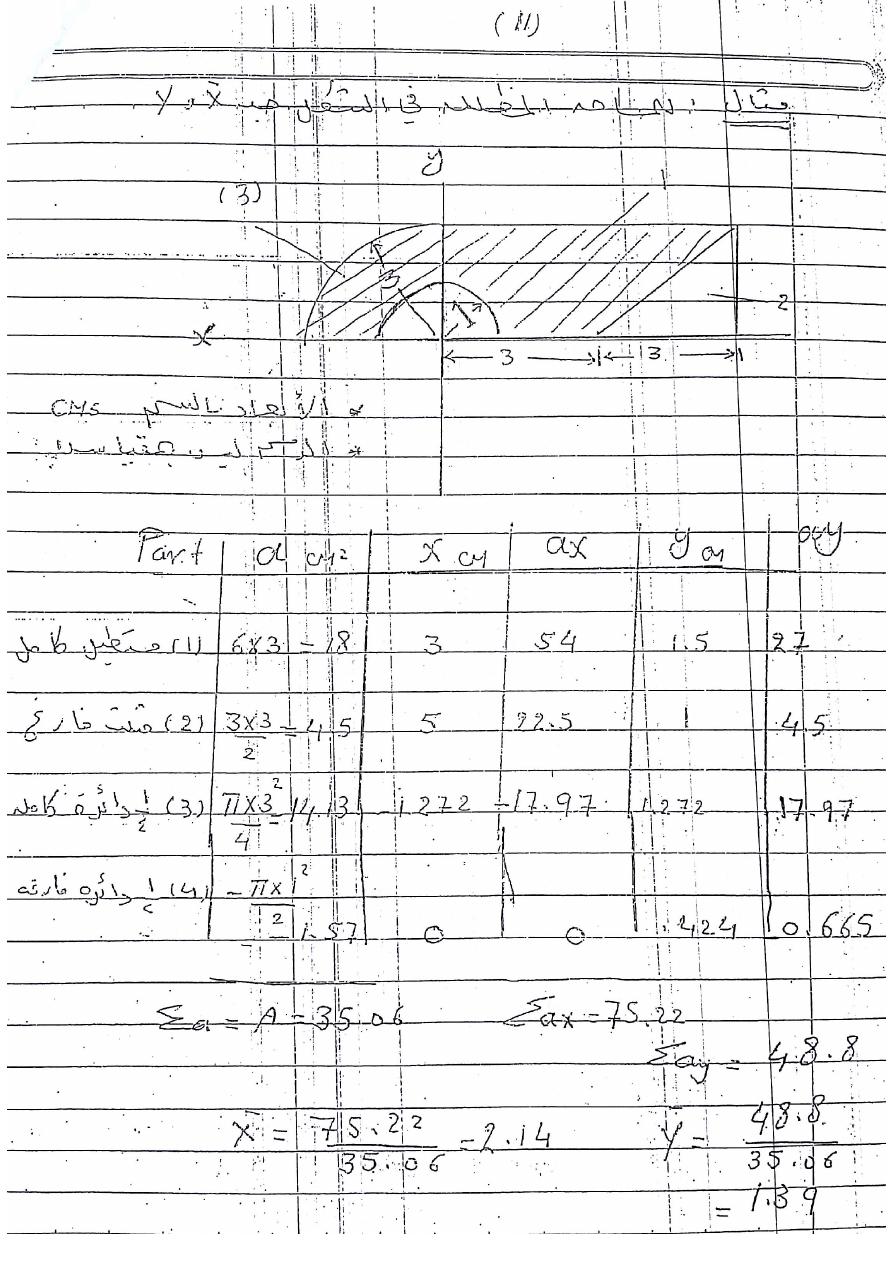 (11)
مثال : المساحه المظلله في الشكل جد X̄ و Ȳ
y
(3)
1
3
1
2
x
3 3
* الأبعاد بالسم CMS
* الرسم ليس بمقياس
Part a cm² x cm ax y cm ay
(1) مستطيل كامل 6x3 = 18 3 54 1.5 27
(2) مثلث فارغ 3x3/2 = 4.5 5 22.5 1 4.5
(3) ¼ دائرة كامله πx3²/4 = 14.13 -1.272 -17.97 1.272 17.97
(4) ½ دائره فارغه - πx1²/2
= 1.57 0 0 .424 0.665
Σa = A = 35.06 Σax = 75.22
Σay = 48.8
X̄ = 75.22/35.06 = 2.14 Ȳ = 48.8/35.06
= 1.39